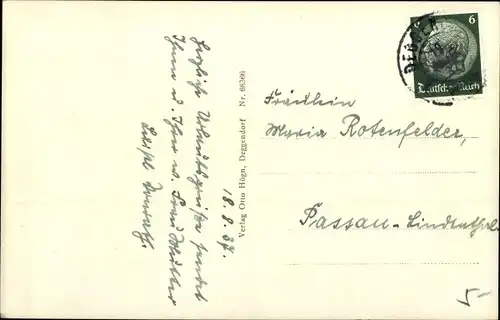 18.8.37.
Herzliche Urlaubsgrüße sendet
Ihnen u. Ihrer w. Frau Mutter
Verlag Otto Högn, Deggendorf Nr. 68366
6
Deutsches Reich
Fräulein
Maria Rotenfelder,
Passau-Lindenthal
5-